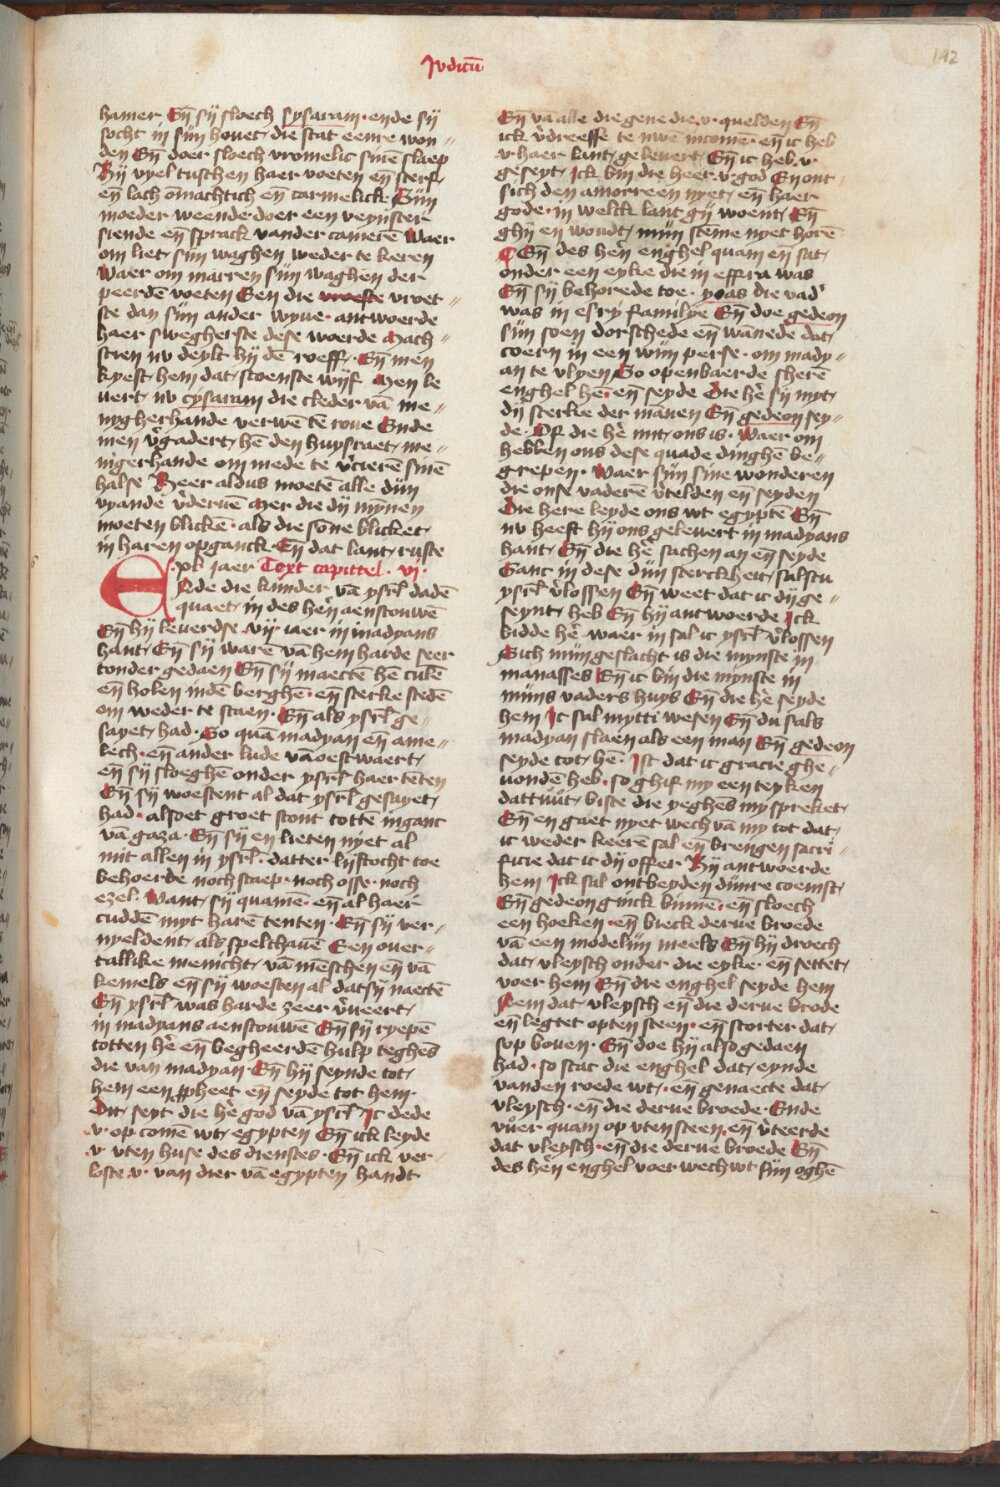 Judicū
112
hamer Eñ sij sloech sysaram · ende sij
socht in sijn houet die stat eenre won〃
den Eñ doer sloech vromelic sinē slaep
Hij vyel tusschen haer voeten eñ sterf
eñ lach ōmachtich eñ carmelick Sijn
moeder weende doer een veynster
siende eñ sprack vander camerē Waer
om liet sijn waghen weder te keren
Waer om marren sijn waghen der
peerdē voeten Een die vroeste vroet〃
ste dan sijn ander wyue · antwoerde
haer swegherste dese woerde Mach〃
scien nv deylt hij dē roeff · Eñ men
kyest hem dat scoenste wijf Men le
uert nv cysaram die cleder vā me〃
nygherhande verwē te roue Ende
men v̓gadert hē den huysraet me〃
nigerhande om mede te v̓cierē sinē
halse Heer aldus moetē alle dijn
vyande v̓deruē Mer die dij mynen
moeten blickē · als die sōne blicket
in haren opganck Eñ dat lant ruste
xl iaer Text capittel · vi ·
Ende die kinder vā ysrl̄ dadē
quaet in des hēn aenscouwē
Eñ hij leuerdse vij iaer in madyans
hant Eñ sij warē vā hem harde seer
tonder gedaen Eñ sij maectē hē culē
eñ holen indē berghē · eñ sterke stedē
om weder te staen · Eñ als ysrl̄ ge〃
sayet had · So quā madyan eñ ame〃
lech · eñ ander lude vā oestwaert
eñ sij sloeghē onder ysrl̄ haer tēten
Eñ sij woestent al dat ysrl̄ gesayet
had · alsoet groet stont totte inganc
vā gaza · Eñ sij en lieten nyet al
mit allen in ysrl̄ · datter lijftocht toe
behoerde noch scaep · noch osse · noch
ezel · Want sij quamē · eñ al haer
cuddē myt harē tenten · Eñ sij ver〃
nyeldent als spelthauē Een ouer〃
tallike menicht vā mēschen eñ vā
kemels eñ sij woesten al datsij naectē
Eñ ysrl̄ was harde zeer v̓ueert
in madyans aenscouwē Eñ sij ryepē
totten hē eñ begheerdē hulp teghēs
die van madyan · Eñ hij seynde tot
hem een ꝓpheet eñ seyde tot hem ·
Dit seyt die hē god vā ysrl̄ Ic dede
v · op comē wt egypten Eñ ick leyde
v · vten huse des dienstes · Eñ ick ver〃
loste v · van dier vā egypten handt
Eñ vā alle die gene die v · quelden Eñ
ick v̓dreeffe te uwē incomē · eñ ic heb
v · haer lant geleuert Eñ ic heb · v ·
geseyt Ick bin die heer v · god En ont〃
sich den amorreen nyet eñ haer
gode · in welck lant gij woent Eñ
ghij en woudt mijn stēme nyet horē
Eñ des hēn enghel quam eñ sat
onder een eyke die in effra was
Eñ sij behorede toe · yoas die vad̓
was in esry familye Eñ doe gedeon
sijn soen dorschede eñ wānede dat
coern in een wijn perse · om mady〃
an te vlyen So openbaerde sherē
enghel hē · eñ seyde Die hē sij myt
dij sterke der mānen Eñ gedeon sey〃
de · Of die hē mit ons is · Waer om
hebben ons dese quade dinghē be〃
grepen · Waer sijn sine wonderen
die onse vaderē v̓telden eñ seyden
Die here leyde ons wt egyptē Eñ
nv heeft hij ons geleuert in madyans
hant · Eñ die hē sachen an eñ seyde
Ganc in dese dijn sterckheit salstu
ysrl̄ v̓lossen Eñ weet dat ic dij ge〃
seynt heb Eñ hij antwoerde Ick
bidde hē waer in sal ic ysrl̄ v̓lossen
Sich mijn geslacht is die mynste in
manasses Eñ ic bin die mynste in
mijns vaders huys Eñ die hē seyde
hem Ic sal mytti wesen Eñ du sals
madyan slaen als een man Eñ gedeon
seyde tot hē · Ist dat ic gracie ghe〃
uondē heb · so ghif my een teyken
dattuut biste die yeghēs my spreket
Eñ en gaet nyet wech vā my tot dat
ic weder keerē sal eñ brengen sacri〃
ficie dat ic dij offer Hij antwoerde
hem Ick sal ontbeyden dijnre coemst
Eñ gedeon ginck binnē · eñ sloech
een hoeken · eñ bieck derue broede
vā een modelijn meels Eñ hij droech
dat vleysch onder die eyke · eñ settet
voer hem Eñ die enghel seyde hem
Nem dat vleysch eñ die derue brode
eñ legtet opten steen · eñ storter dat
sop bouen · Eñ doe hij also gedaen
had · so stac die enghel dat eynde
vanden roede wt · eñ genaecte dat
vleysch · eñ die derue broede · Ende
vuer quam op vten steen eñ v̓teerde
dat vleysch · eñ die derue broede Eñ
des hēn enghel voer wech wt sijn oghē